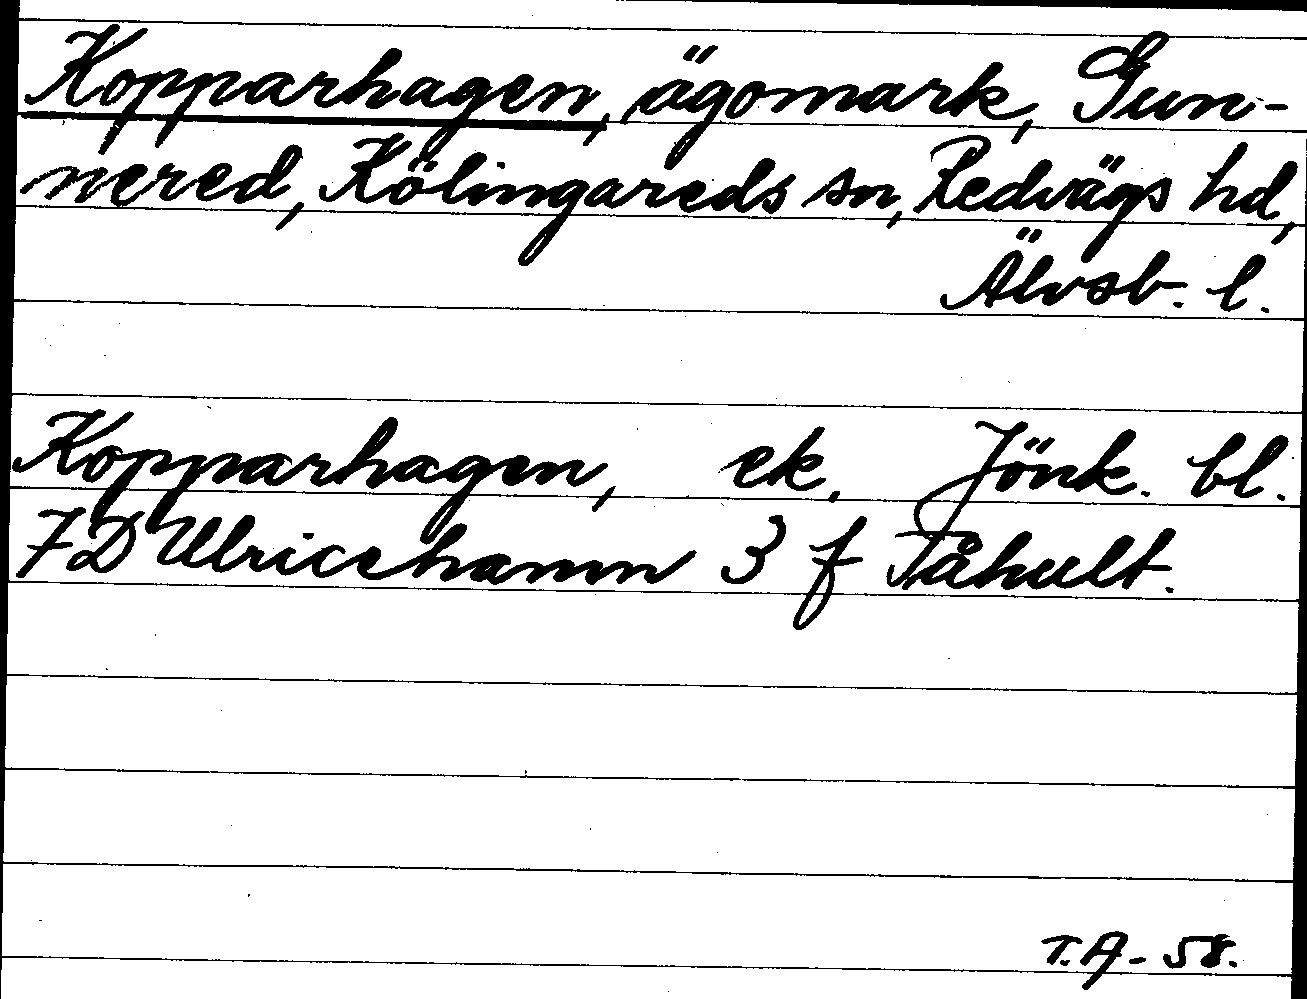 Kopparhagen, ägomark, Gun-
nered, Kölingareds sn, Redvägs hd,
Älvsb. l.
Kopparhagen, ek. Jönk. bl.
7D Ulricehamn 3 f Tåhult.
T.A - 58.